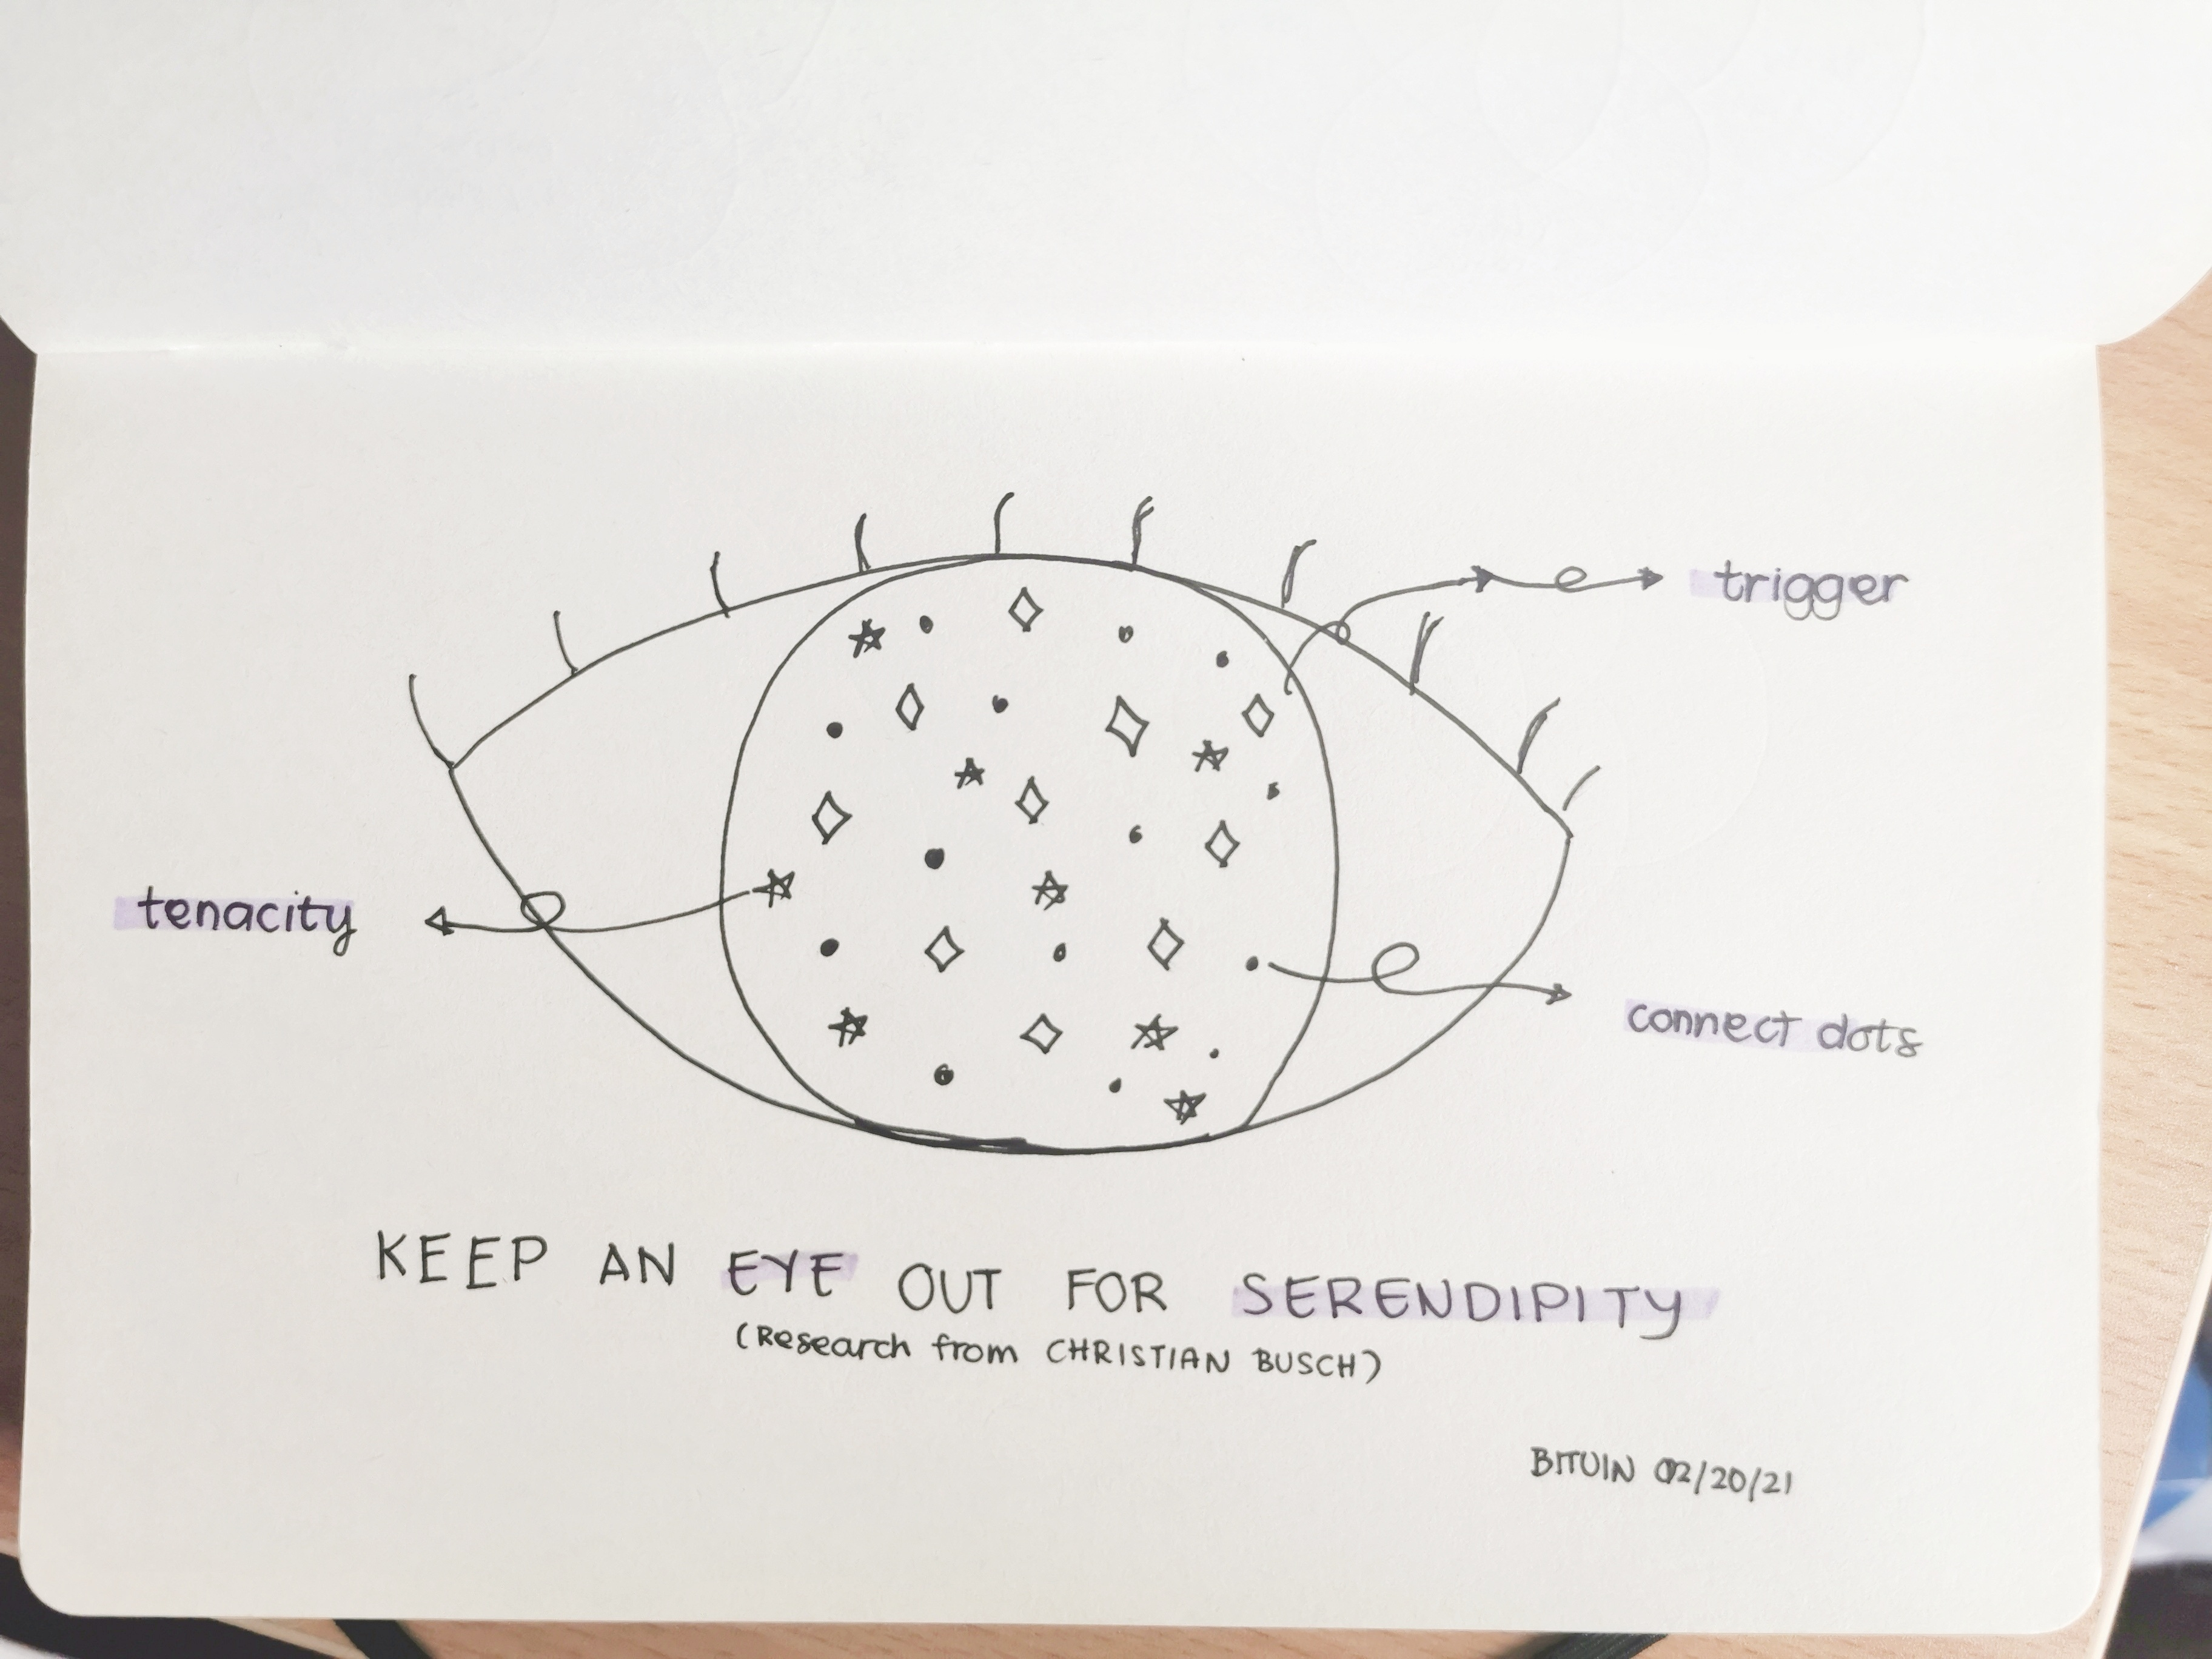 trigger
tenacity
connect dots
KEEP AN EYE OUT FOR SERENDIPITY
(Research from CHRISTIAN BUSCH)
BITUIN 02/20/21